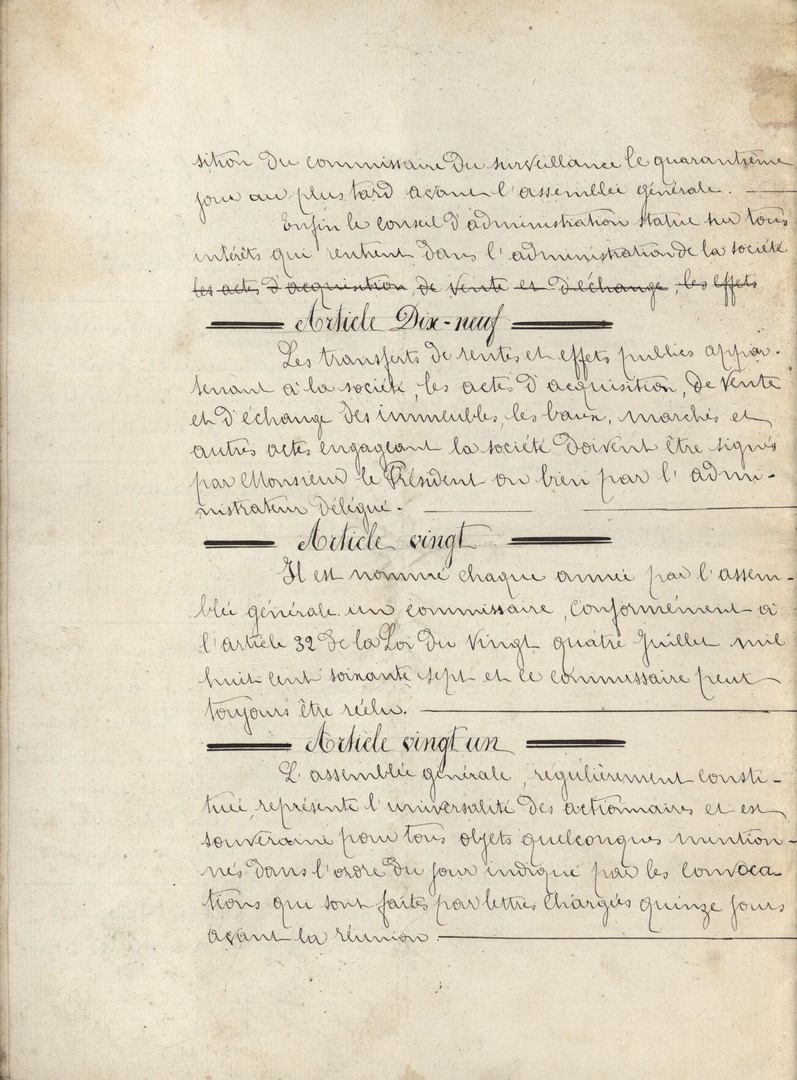 sition du commissaire du surveillance le quarantième
jour au plus tard avant l'assemblée générale.
Enfin le conseil d'administration statue sur tous
intérêts qui rentrent dans l'administration de la société
les actes d'acquisition, de vente et d'échange, les effets
Article Dix-neuf
Les transferts de rentes et effets publics appar-
tenant à la société, les actes d'acquisition, de vente
et d'échange des immeubles, les baux, marchés et
autres actes engageant la société doivent être signés
par Monsieur le Président ou bien par l'admi-
nistrateur délégué.
Article vingt
Il est nommé chaque année par l'assem-
blée générale un commissaire, conformément à
l'article 32 de la Loi du vingt quatre Juillet mil
huit cent soixante sept et ce commissaire peut
toujours être réélu.
Article vingt un
L'assemblée générale, régulièrement consti-
tuée, représente l'universalité des actionnaires et est
souveraine pour tous objets quelconques mention-
nés dans l'ordre du jour indiqué par les convoca-
tions qui sont faites par lettres chargées quinze jours
avant la réunion.